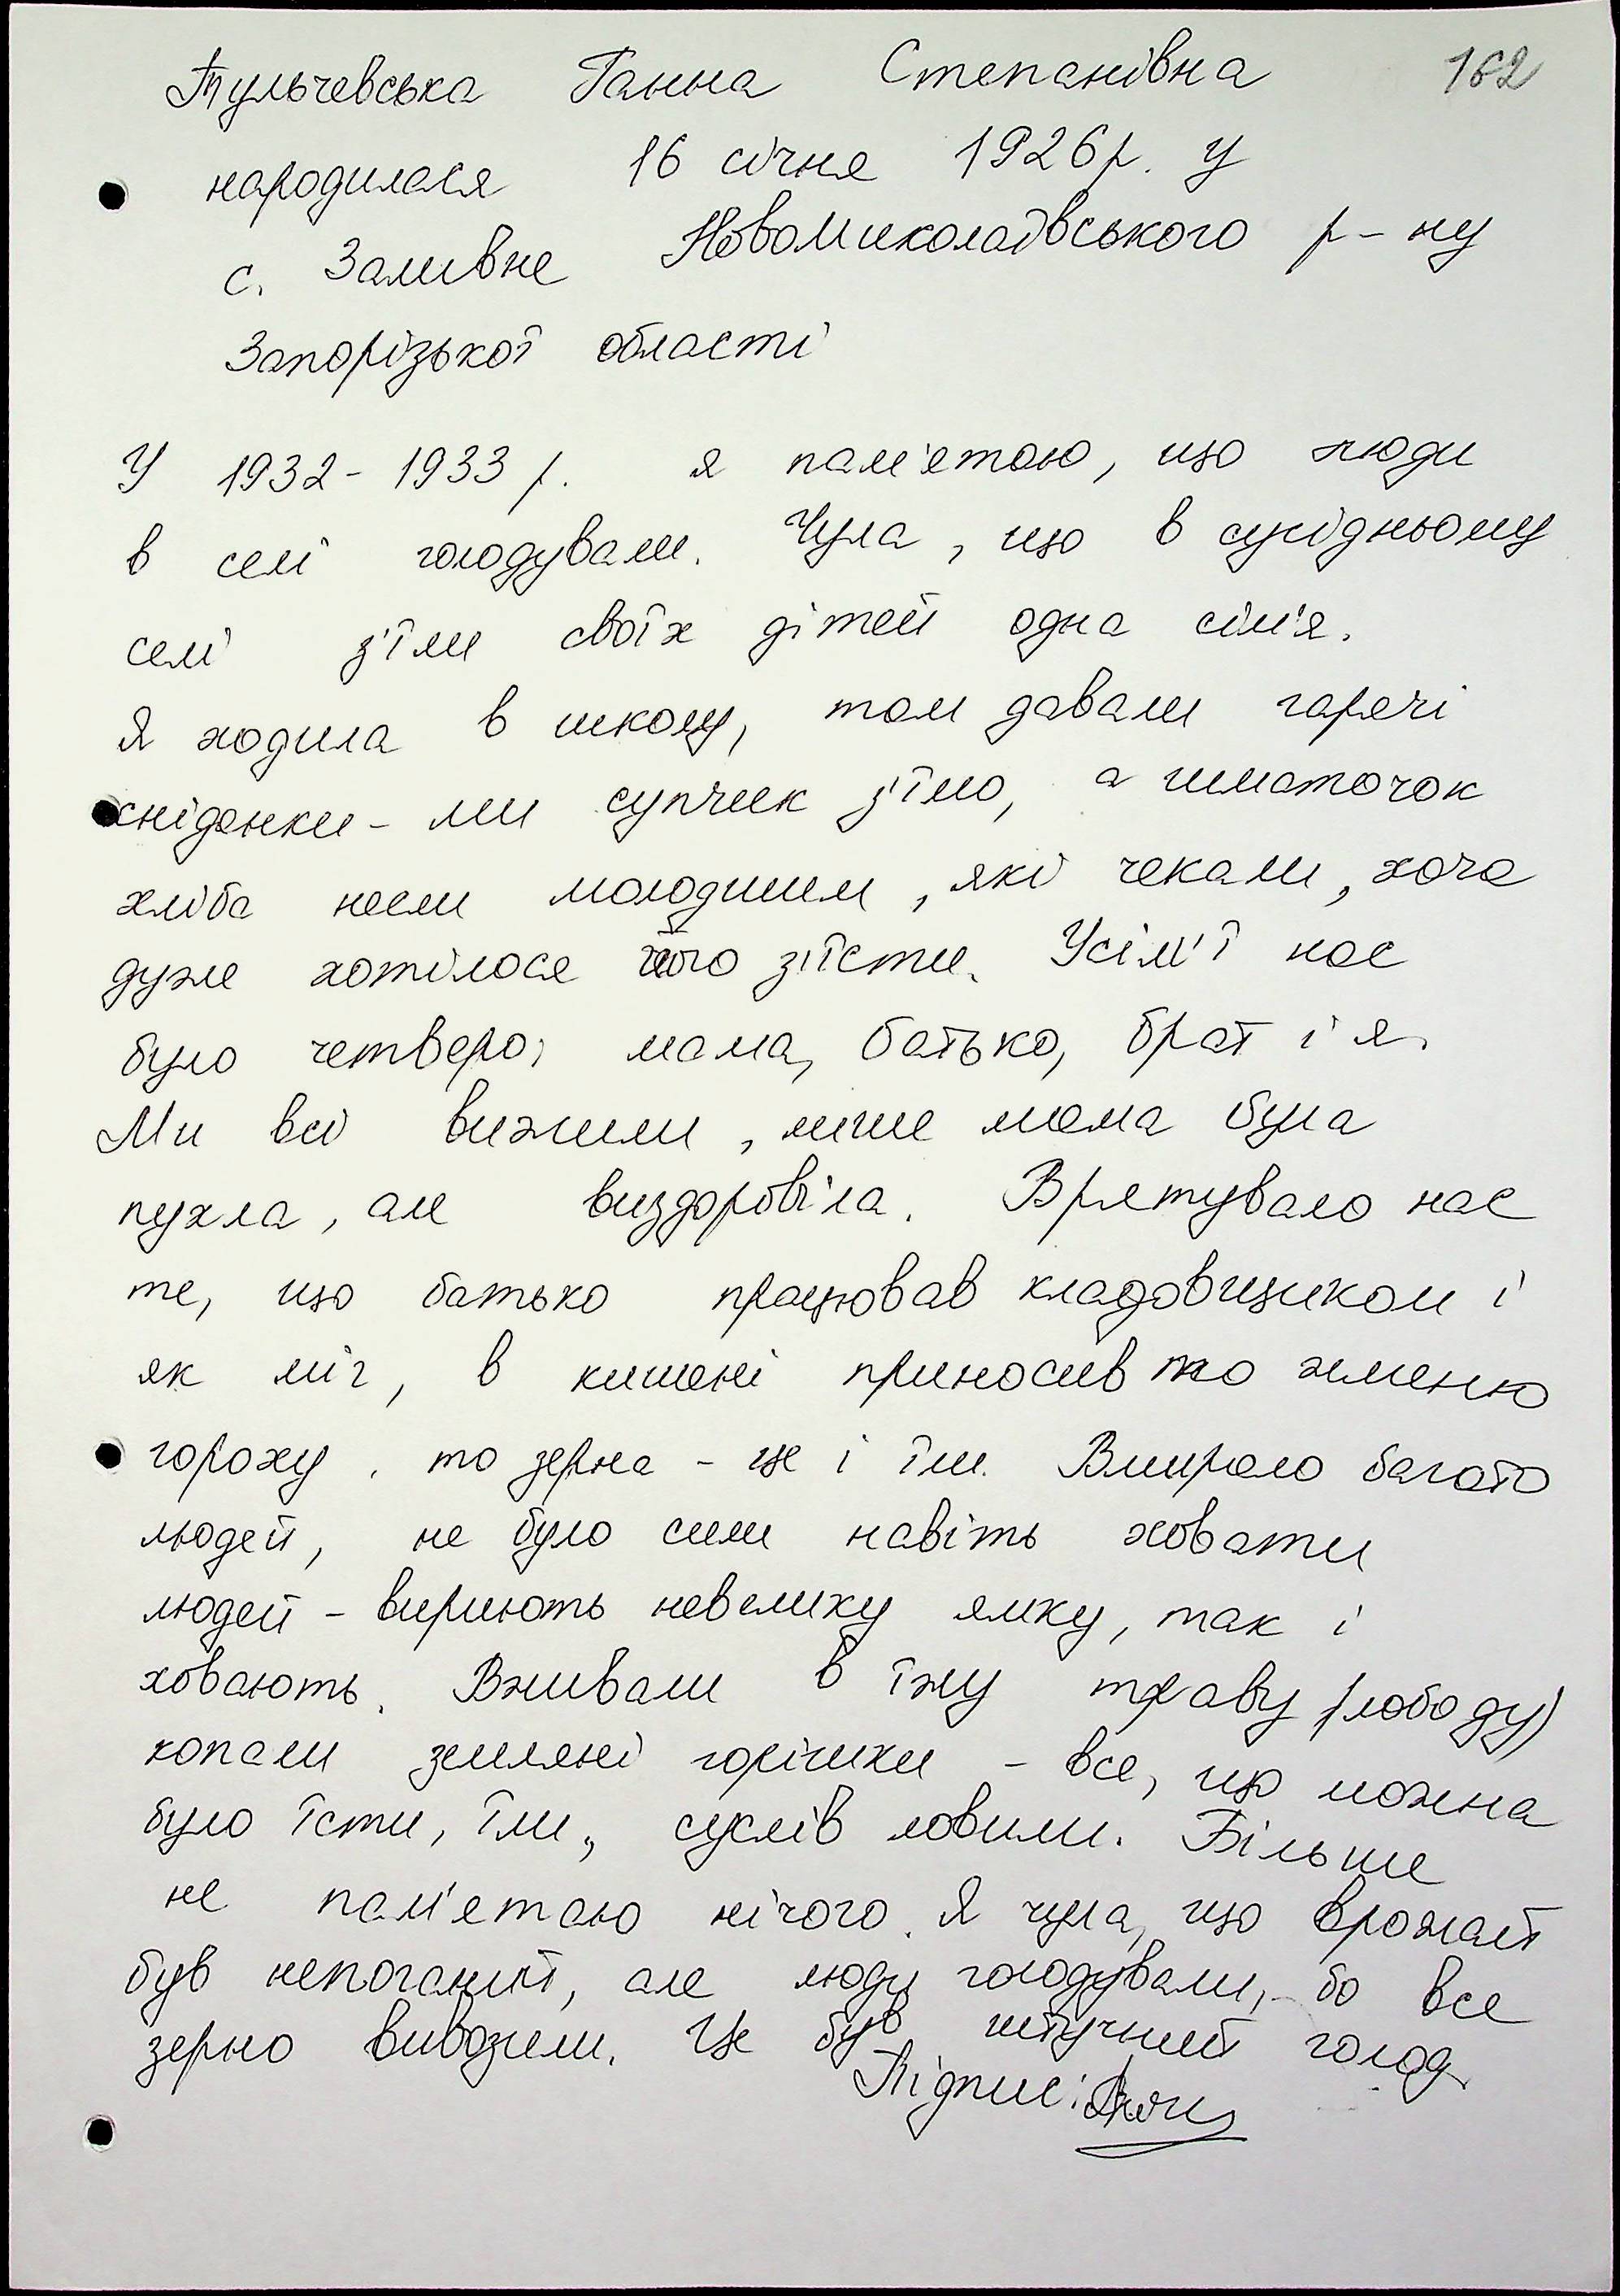 Тульчевська Ганна Степанівна 162
народилася 16 січня 1926р. у
с. Заливне Новомиколаївського р-ну
Запорізької області
У 1932-1933 р. я пам'ятаю, що люди
в селі голодували. Чула, що в сусідньому
селі з'їли своїх дітей одна сім'я.
Я ходила в школу, там давали гарячі
сніданки - ми супчик з'їмо, а шматочок
хліба несли молодшим, які чекали, хоча
дуже хотілося його з'їсти. У сім'ї нас
було четверо: мама, батько, брат і я.
Ми всі вижили, лише мама була
пухла, але виздоровіла. Врятувало нас
те, що батько працював кладовщиком і
як міг, в кишені приносив то жменю
гороху, то зерна - це і їли. Вмирало багато
людей, не було сили навіть ховати
людей - вириють невелику ямку, так і
ховають. Вживали в їжу траву (лободу)
копали земляні горішки - все, що можна
було їсти, їли, сусл��в ловили. Більше
не пам'ятаю нічого. Я чула, що врожай
був непоганий, але люди голодували, бо все
зерно вивозили. Це був штучний голод.
Підпис: